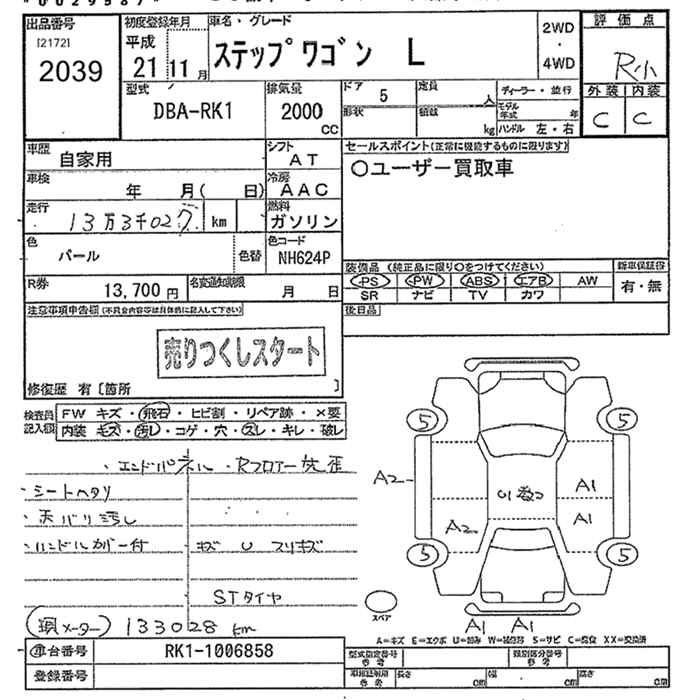 出品番号
[2172]
2039
初度登録年月
平成
21 11 月
車名・グレード
ステップワゴン L
2WD
・
4WD
評価点
R小
外装 内装
C C
型式
DBA-RK1
排気量
2000
CC
ドア
5
定員
人
形状
積載
kg
ディーラー・並行
モデル年式
年
ハンドル 左・右
車歴
自家用
シフト
AT
車検
年 月( 日)
冷房
AAC
走行
13万3千027 km
燃料
ガソリン
色
パール
色替
色コード
NH624P
R券
13,700 円
名変通知期限
月 日
セールスポイント(正常に機能するものに限ります)
○ユーザー買取車
装備品 (純正品に限り○をつけてください)
PS PW ABS エアB AW
SR ナビ TV カワ
新車保証書
有・無
後日品
注意事項申告欄(不具合内容等は具体的に記入して下さい)
売りつくしスタート
修復歴 有〔箇所 〕
検査員記入欄
FW キズ・飛石・ヒビ割・リペア跡・×要
内装 キズ・汚レ・コゲ・穴・スレ・キレ・破レ
・エンドパネル・Rフロアー
・シートヘタリ
・天バリ汚レ
・ハンドルカバー付 キズ U スリキズ
STタイヤ
(現メーター) 133028 km
車台番号
RK1-1006858
登録番号
5 5
A2
A1
A1
A2
5 5
スペア
A1 A1
A=キズ E=エクボ U=凹み W=補修跡 S=サビ C=腐食 XX=交換済
型式指定番号
参考
類別区分番号
参考
車検証射程
参考
長さ cm 幅 cm 高さ cm